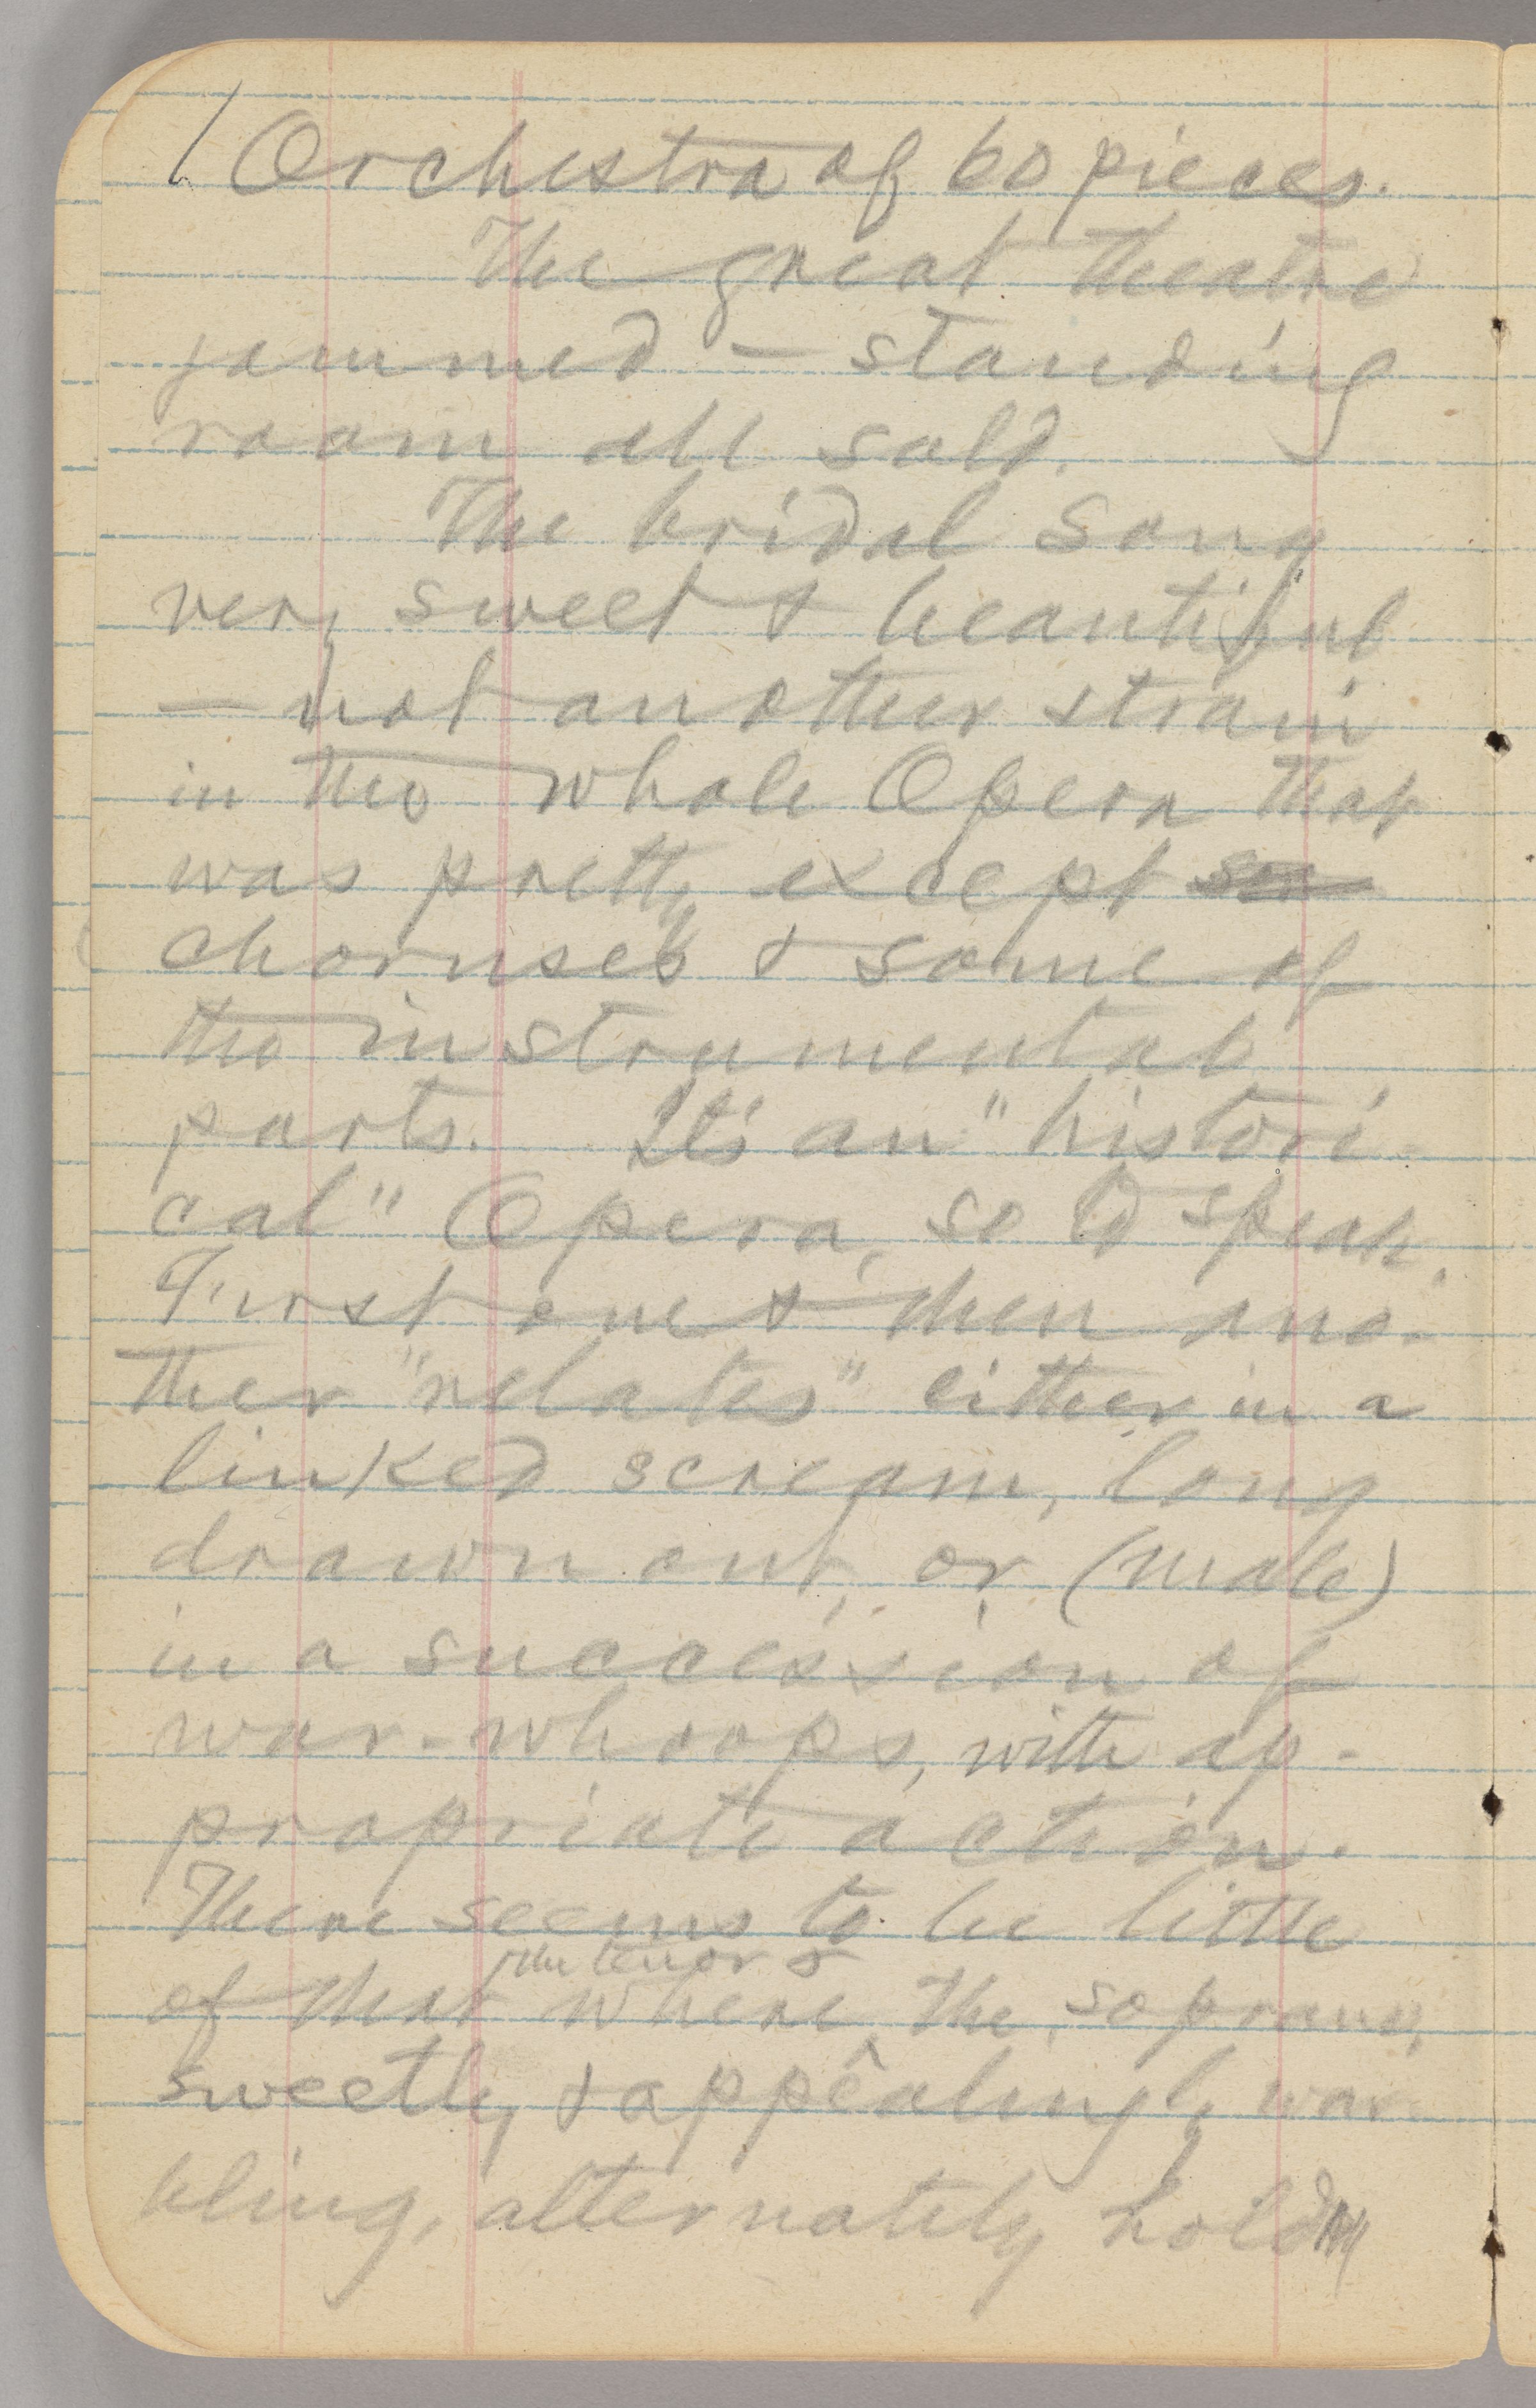 Orchestra of 60 pieces.
The great theatre
jammed — standing
room all sold.
The bridal song
very sweet & beautiful
— not another strain
in the whole Opera that
was pretty except
choruses & some of
the instrumental
parts. It's an "histori-
cal" Opera, so to speak.
First one & then ano-
ther "relates" either in a
linked scream, long
drawn out, or (male)
in a succession of
war-whoops, with ap-
propriate action.
There seems to be little
the tenor &
of that where the soprano,
sweetly & appealingly war
bling, alternately hold